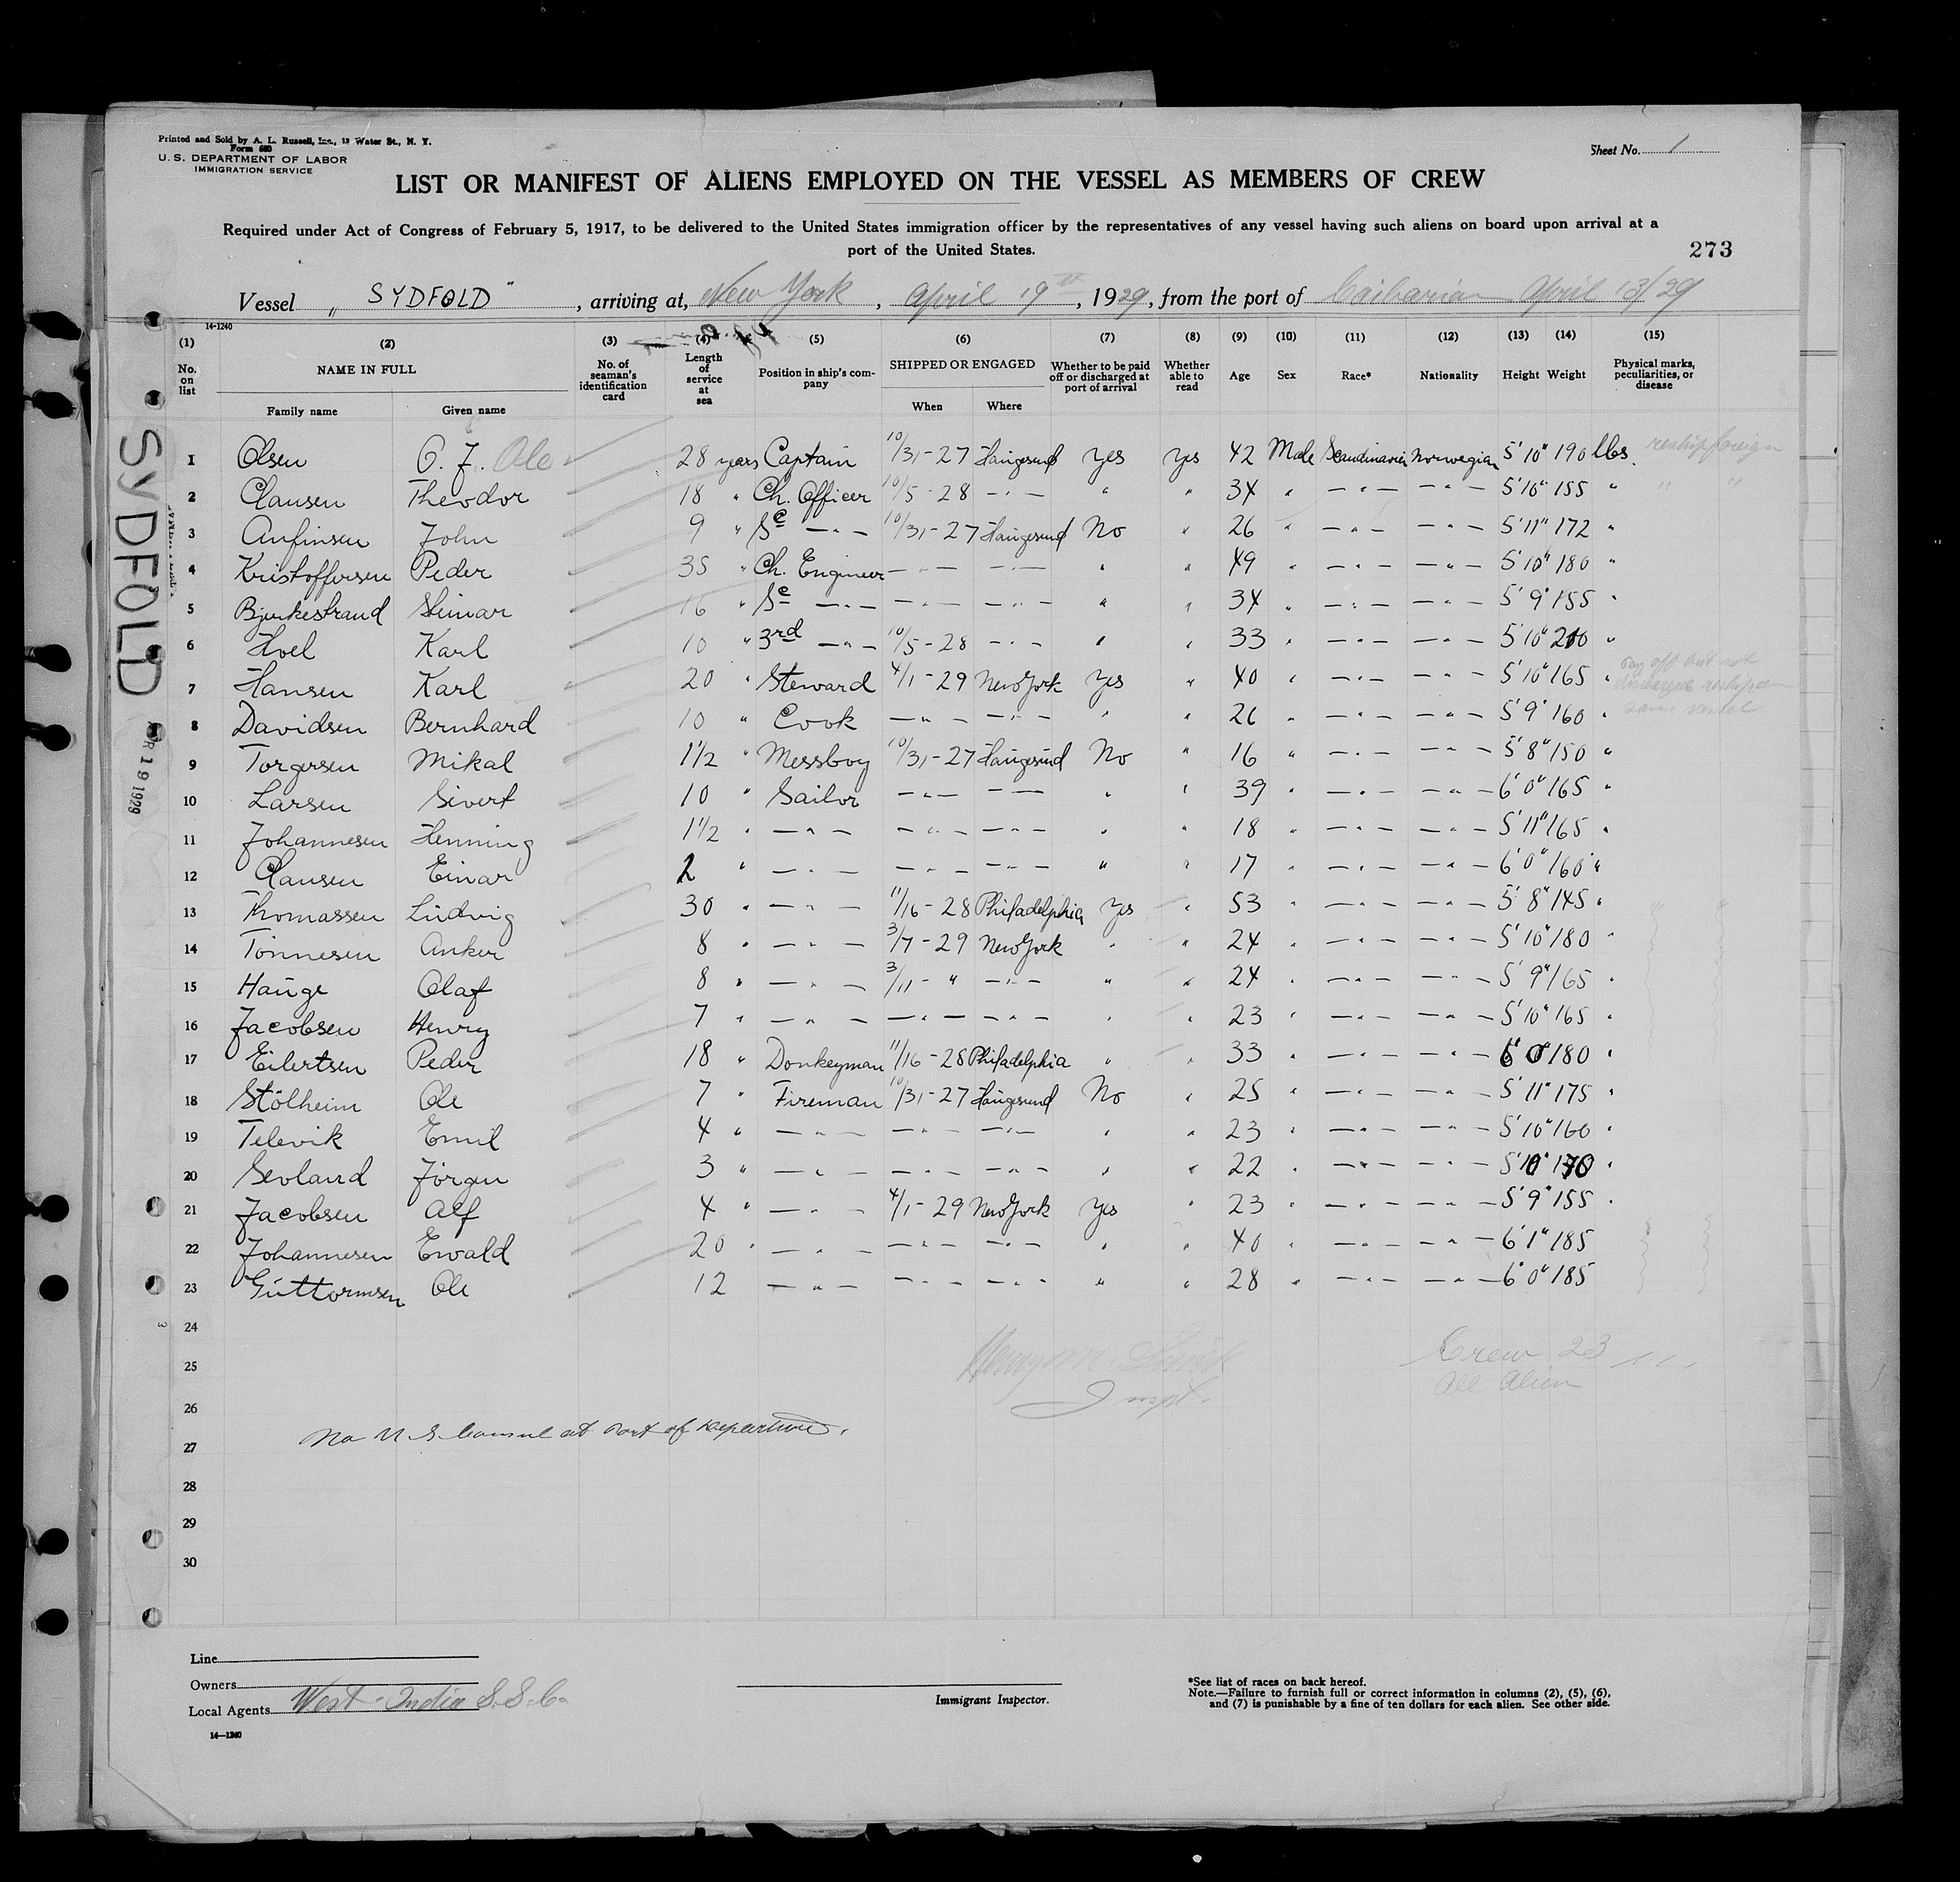 Printed and Sold by A. L. Russell, Inc., 13 Water St., N. Y.
Form 680
U. S. DEPARTMENT OF LABOR
IMMIGRATION SERVICE
Sheet No. 1
LIST OR MANIFEST OF ALIENS EMPLOYED ON THE VESSEL AS MEMBERS OF CREW
Required under Act of Congress of February 5, 1917, to be delivered to the United States immigration officer by the representatives of any vessel having such aliens on board upon arrival at a
port of the United States.
273
Vessel „ SYDFOLD ", arriving at, New York, April 19th, 1929, from the port of Caibarien April 13/29
14-1240
(1) (2) (3) (4) (5) (6) (7) (8) (9) (10) (11) (12) (13) (14) (15)
No. on list NAME IN FULL No. of seaman's identification card Length of service at sea Position in ship's company SHIPPED OR ENGAGED Whether to be paid off or discharged at port of arrival Whether able to read Age Sex Race* Nationality Height Weight Physical marks, peculiarities, or disease
Family name Given name When Where
1 Olsen O. J. Ole 28 years Captain 10/31-27 Haugesund Yes Yes 42 Male Scandinavien Norwegian 5'10" 190 lbs. reship foreign
2 Clausen Theodor 18 " Ch. Officer 10/5-28 -"- " " 34 " -"- -"- 5'10" 155 " " "
3 Anfinsen John 9 " Se -"- 10/31-27 Haugesund No " 26 " -"- -"- 5'11" 172 "
4 Kristoffersen Peder 35 " Ch. Engineer -"- -"- " " 49 " -"- -"- 5'10" 180 "
5 Bjerkestrand Steinar 16 " Se -"- -"- -"- " " 34 " -"- -"- 5'9" 155 "
6 Hoel Karl 10 " 3rd -"- 10/5-28 -"- " " 33 " -"- -"- 5'10" 200 "
7 Hansen Karl 20 " Steward 4/1-29 New York Yes " 40 " -"- -"- 5'10" 165 " pay off but not
discharged reship on
same vessel
8 Davidsen Bernhard 10 " Cook -"- -"- " " 26 " -"- -"- 5'9" 160 "
9 Torgersen Mikal 1 1/2 " Messboy 10/31-27 Haugesund No " 16 " -"- -"- 5'8" 150 "
10 Larsen Sivert 10 " Sailor -"- -"- " " 39 " -"- -"- 6'0" 165 "
11 Johannesen Henning 1 1/2 " -"- -"- -"- " " 18 " -"- -"- 5'11" 165 "
12 Clausen Einar 2 " -"- -"- -"- " " 17 " -"- -"- 6'0" 160 "
13 Thomassen Ludvig 30 " -"- 11/16-28 Philadelphia Yes " 53 " -"- -"- 5'8" 145 " " "
14 Tönnesen Anker 8 " -"- 3/7-29 New York " " 24 " -"- -"- 5'10" 180 "
15 Hauge Olaf 8 " -"- 3/11-" -"- " " 24 " -"- -"- 5'9" 165 "
16 Jacobsen Henry 7 " -"- -"- -"- " " 23 " -"- -"- 5'10" 165 "
17 Eilertsen Peder 18 " Donkeyman 11/16-28 Philadelphia " " 33 " -"- -"- 6'0" 180 "
18 Stölheim Ole 7 " Fireman 10/31-27 Haugesund No " 25 " -"- -"- 5'11" 175 "
19 Televik Emil 4 " -"- -"- -"- " " 23 " -"- -"- 5'10" 160 "
20 Sevland Jörgen 3 " -"- -"- -"- " " 22 " -"- -"- 5'10" 170 "
21 Jacobsen Alf 4 " -"- 4/1-29 New York Yes " 23 " -"- -"- 5'9" 155 "
22 Johannesen Ewald 20 " -"- -"- -"- " " 40 " -"- -"- 6'1" 185
23 Guttormsen Ole 12 -"- -"- -"- " " 28 " -"- -"- 6'0" 185
24
25 Crew 23
All Alien
Inspt.
26
27 No U S Consul at Port of departure.
28
29
30
Line
Owners
Local Agents West India S.S. Co
14-1240
Immigrant Inspector.
*See list of races on back hereof.
Note.—Failure to furnish full or correct information in columns (2), (5), (6),
and (7) is punishable by a fine of ten dollars for each alien. See other side.
SYDFOLD
R 19 1929